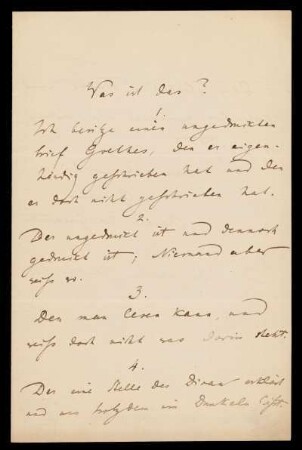 Was ist das?
1.
Ich besitze einen ungedruckten
Brief Goethes, den er eigen-
händig geschrieben hat und den
er doch nicht geschrieben hat.
2.
Der ungedruckt ist und dennoch
gedruckt ist; Niemand aber
weiß wo.
3.
Den man lesen kann, und
weiß doch nicht was darin steht.
4.
Der eine Stelle des Divan erklärt
und uns trotzdem im Dunkeln läßt.